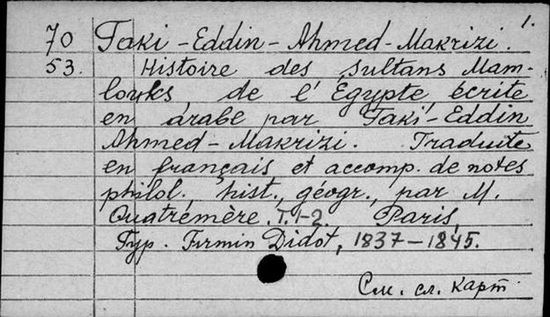 1.
70 Taki-Eddin-Ahmed-Makrizi.
53. Histoire des sultans Mam-
louks de l'Égypte, écrite
en arabe par Taki-Eddin
Ahmed-Makrizi. Traduite
en français et accomp. de notes
philol. hist., géogr., par M.
Quatrémère. T.1-2. Paris,
Typ. Firmin Didot, 1837-1845.
См. сл. карт.